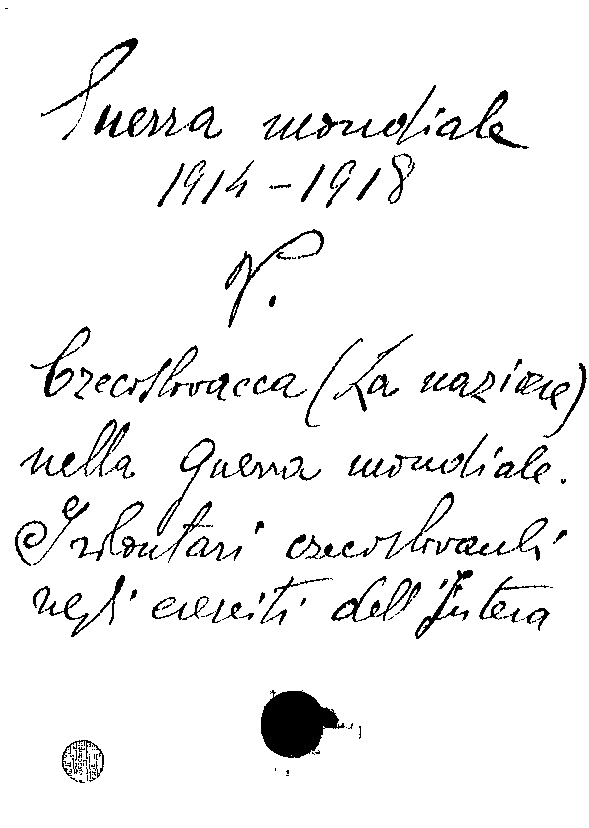 Guerra mondiale
1914-1918
V.
Czecoslovacca (La nazione)
nella guerra mondiale.
I volontari czecoslovacchi
negli eserciti dell'Intesa